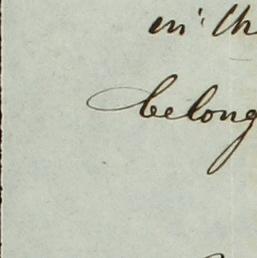 in th
belong